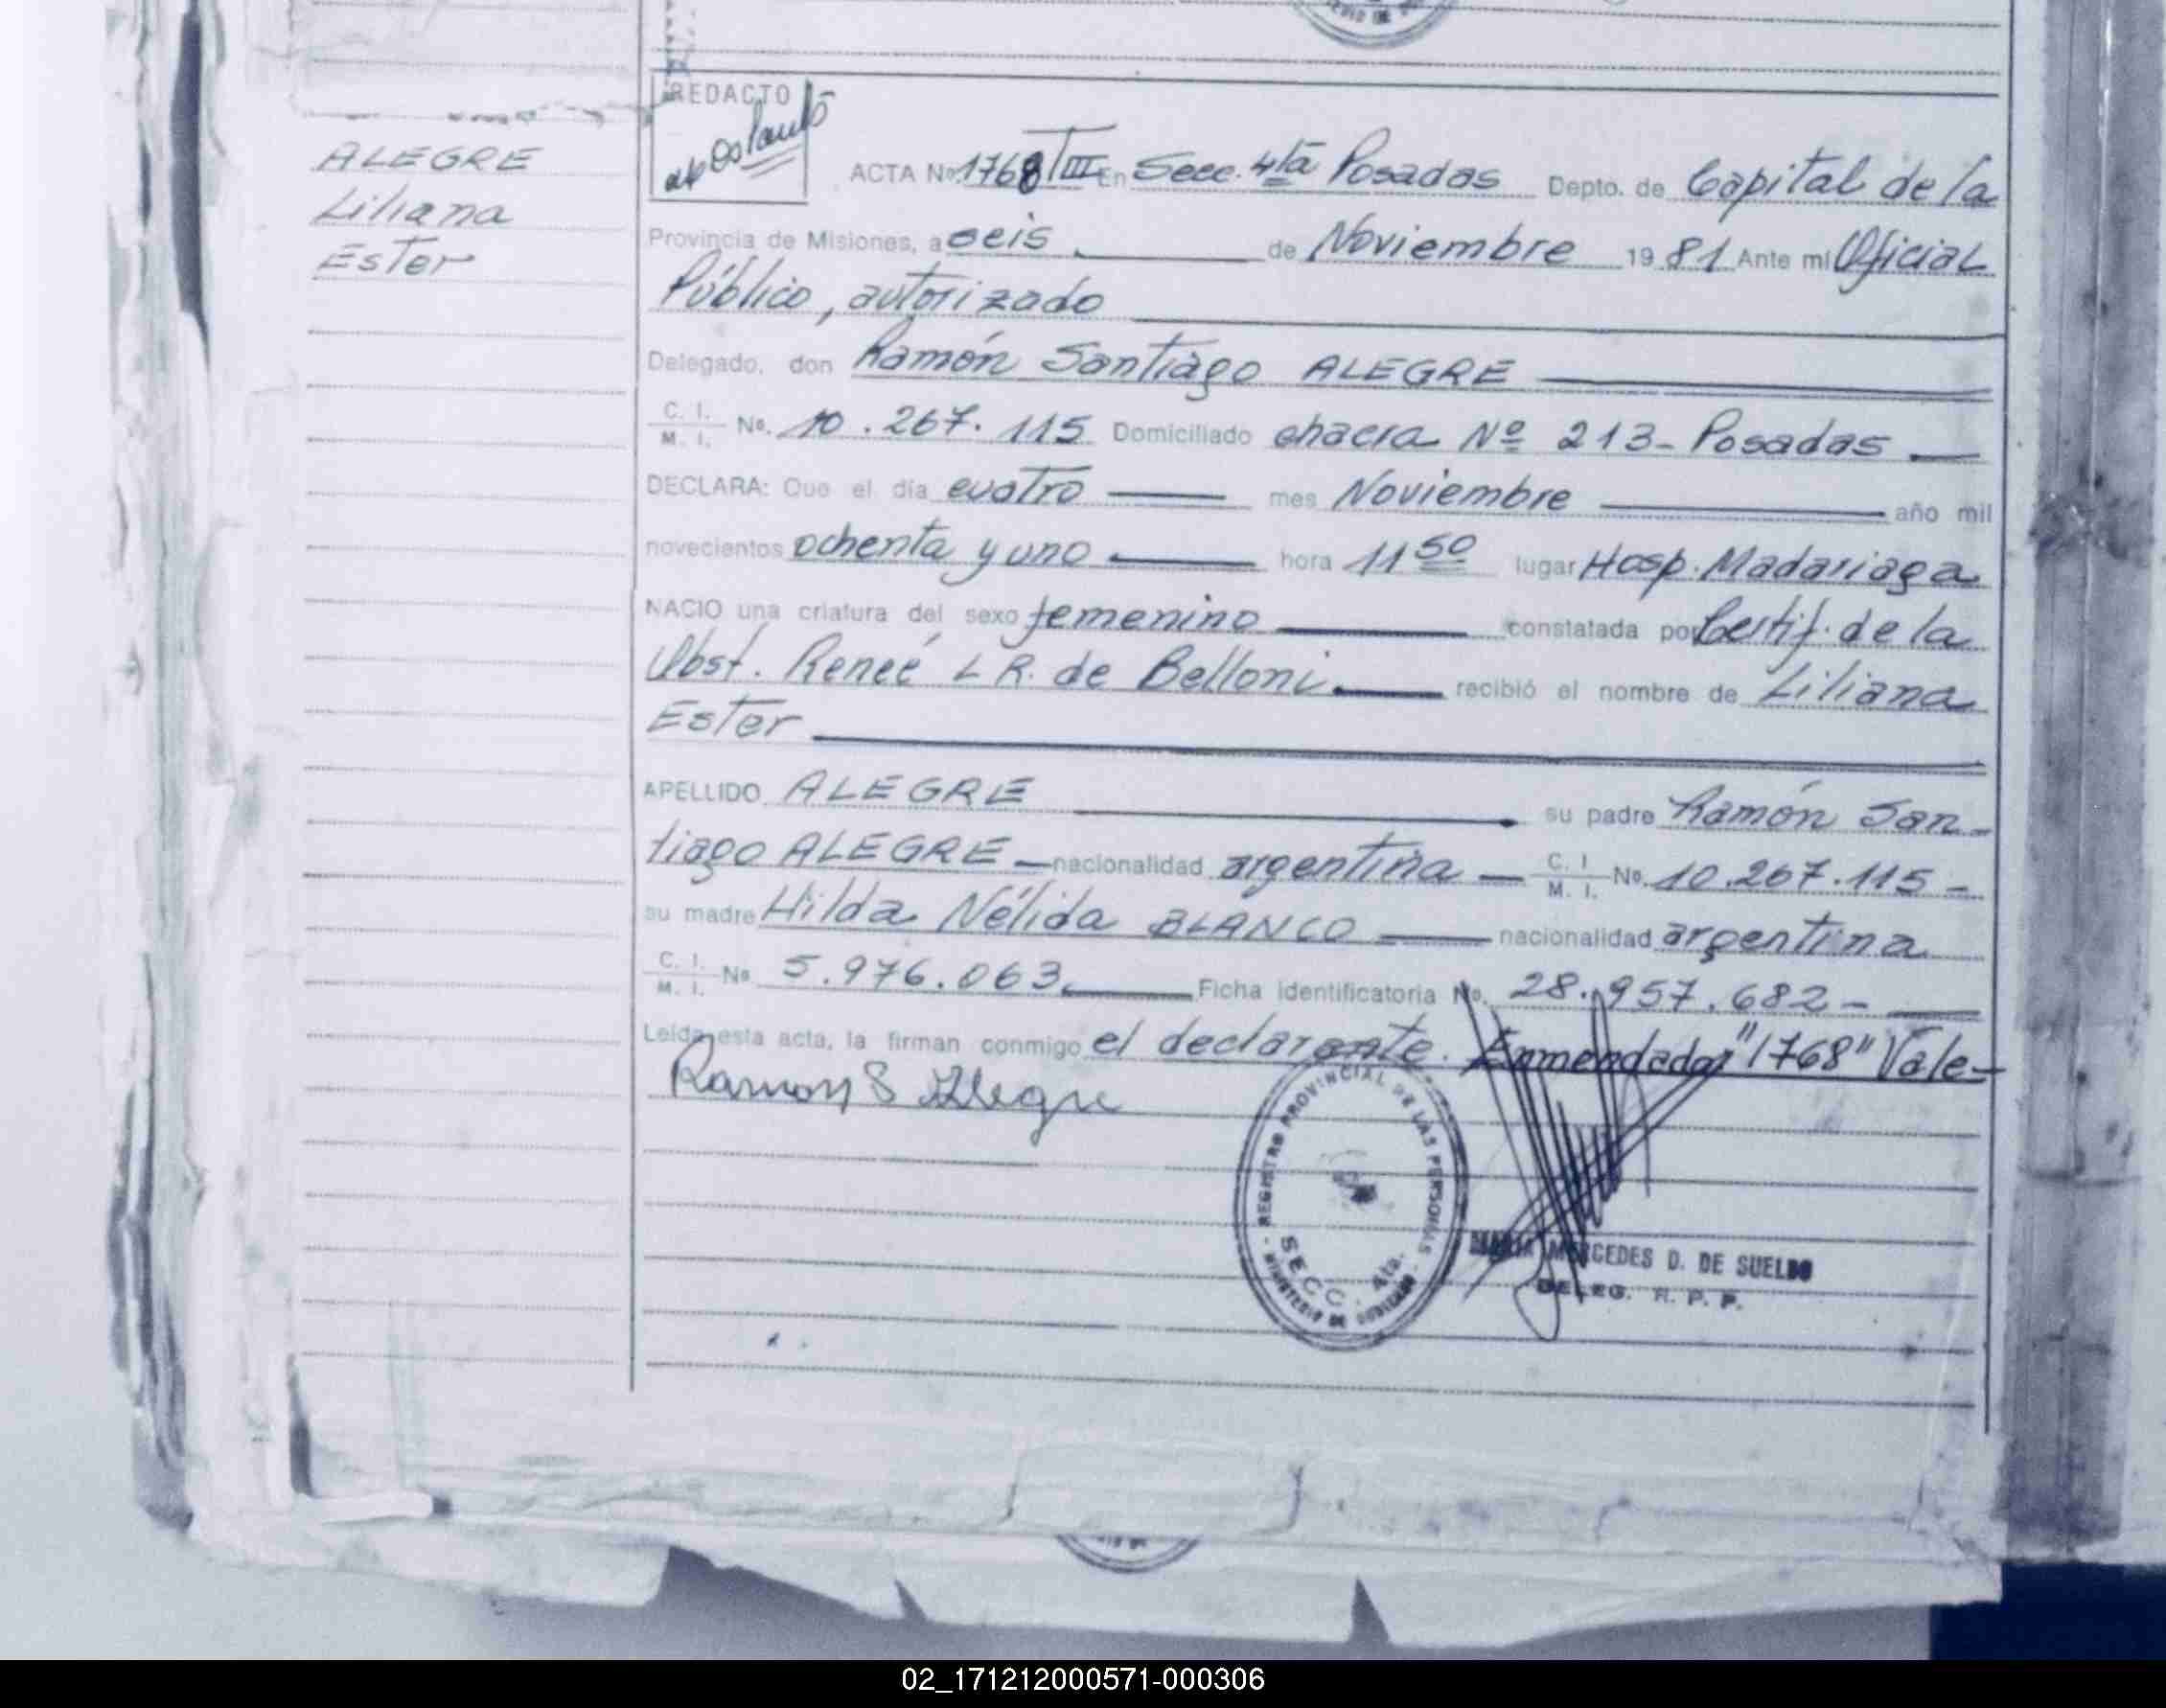 ALEGRE
Liliana
Ester
REDACTO
ACTA Nº 1768 TIII En Secc. 4ta Posadas Depto. de Capital de la
Provincia de Misiones, a seis de Noviembre 1981 Ante mi Oficial
Público, autorizado
Delegado, don Ramón Santiago ALEGRE
C. I.
M. I. Nº. 10.267.115 Domiciliado chacra Nº 213- Posadas
DECLARA: Que el día cuatro mes Noviembre año mil
novecientos ochenta y uno hora 11 50 lugar Hosp. Madariaga
NACIO una criatura del sexo femenino constatada por Certif. de la
Obst. Reneé L R. de Belloni. recibió el nombre de Liliana
Ester
APELLIDO ALEGRE su padre Ramón San-
tiago ALEGRE nacionalidad argentina C. I. M. I. Nº. 10.267.115-
su madre Hilda Nélida BLANCO nacionalidad argentina
C. I.
M. I. Nº 5.976.063. Ficha identificatoria No. 28.957.682-
Leida esta acta, la firman conmigo el declarante. Enmendado: "1768" Vale-
Ramon S Alegre
REGISTRO PROVINCIAL DE LAS PERSONAS
SECC. 4ta.
MINISTERIO DE GOBIERNO
MARIA MERCEDES D. DE SUELDO
DELEG. R. P. P.
02_171212000571-000306